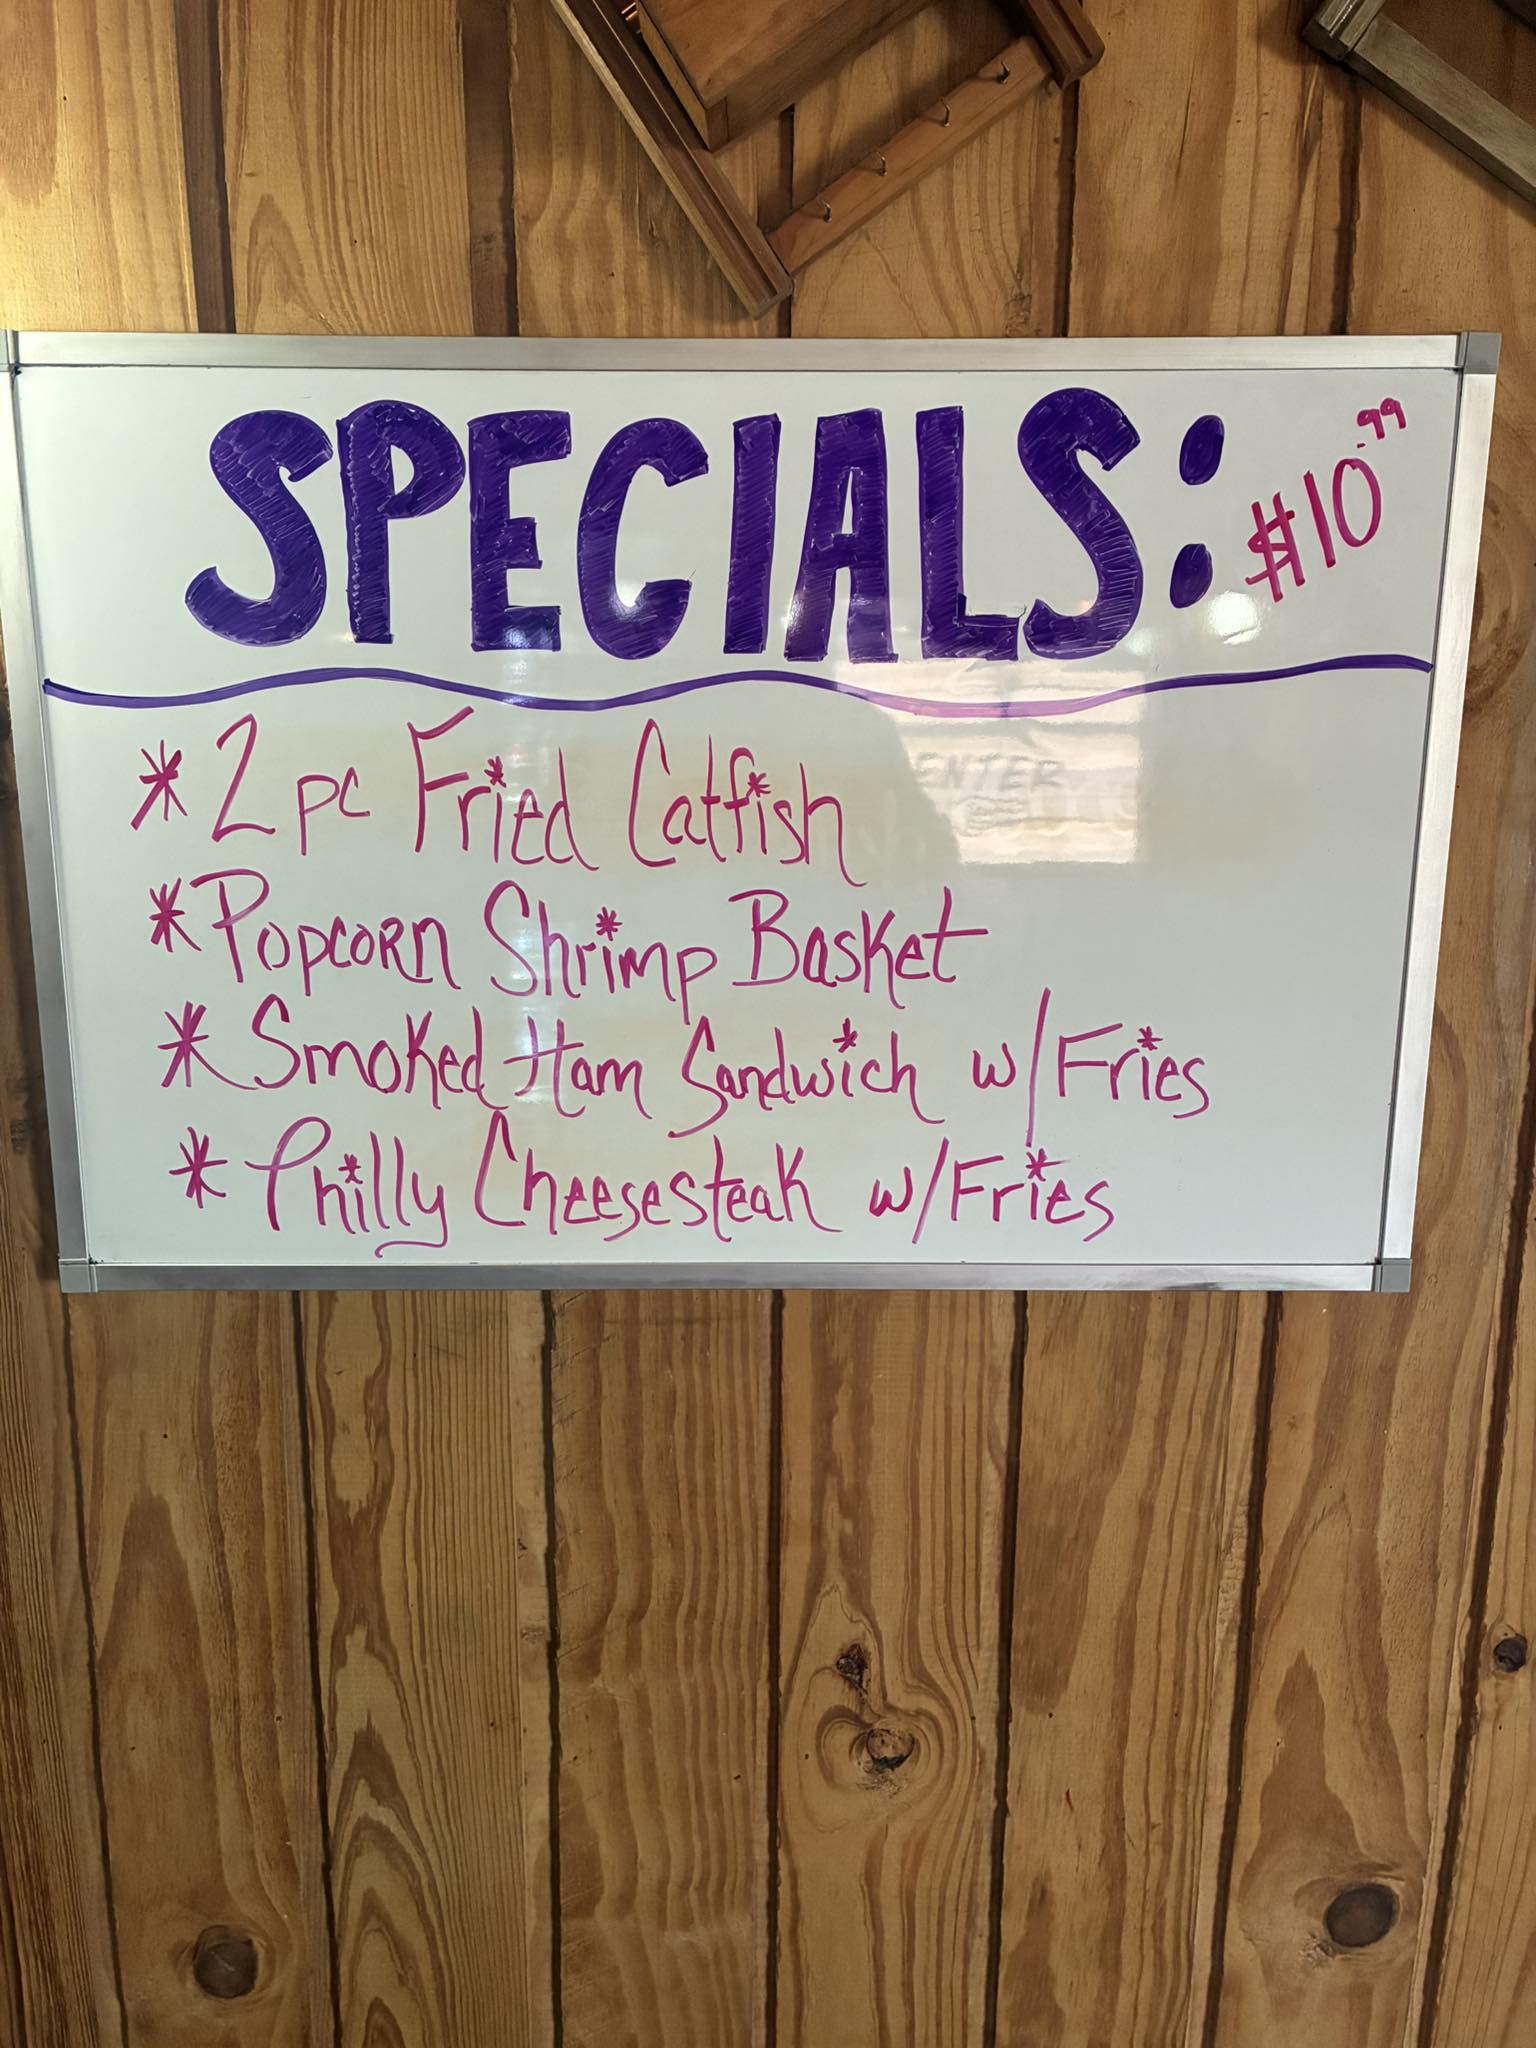 SPECIALS: $10.99
* 2 pc Fried Catfish
* Popcorn Shrimp Basket
* Smoked Ham Sandwich w/Fries
* Philly Cheesesteak w/Fries
ENTER